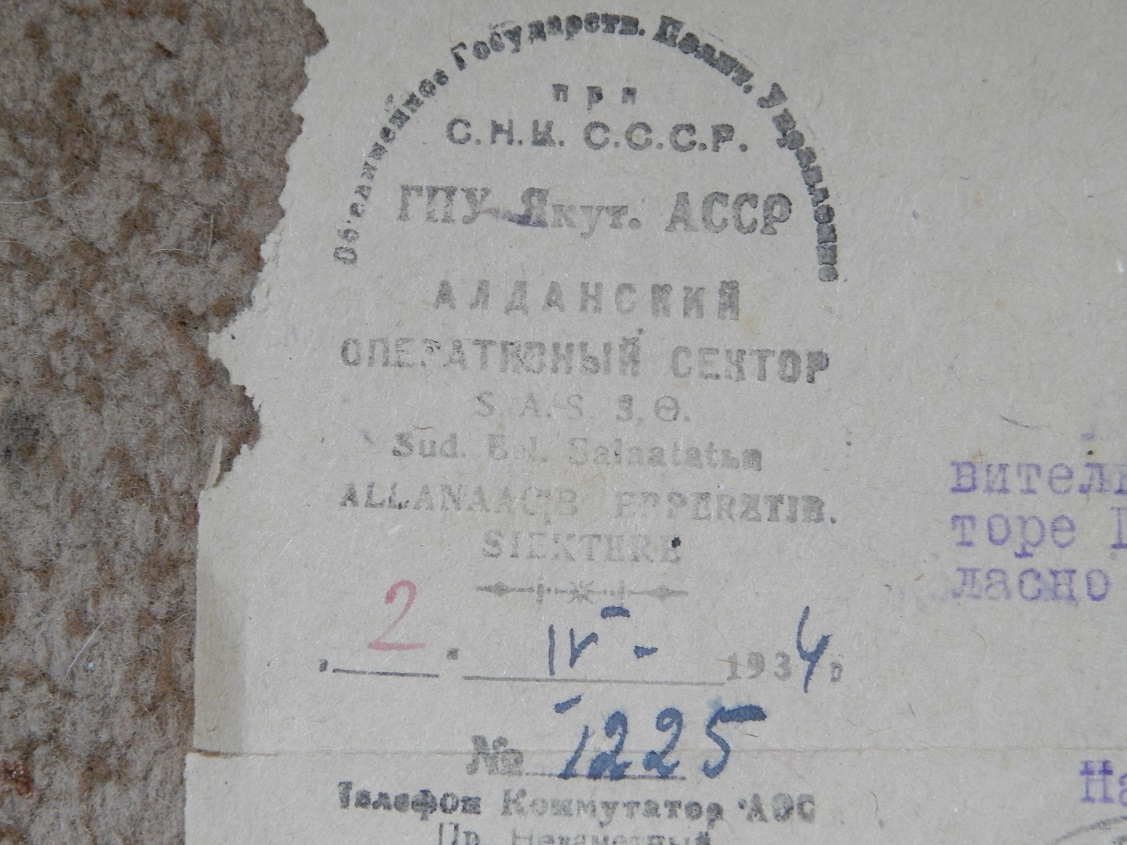 Об'единенное Государств. Полит. Управление
при
С.Н.К. С.С.С.Р.
ГПУ Якут. АССР
АЛДАНСКИЙ
ОПЕРАТИВНЫЙ СЕКТОР
S. A. S. S, Ө.
Sud. Bel. Salaatatьn
ALLANAAƢЬ EPPERETIB.
SIEKTERE
2. IV - 1934г
№ 1225
Телефон Коммутатор АОС
Пр. Незаметный
вител
торе
ласно
На